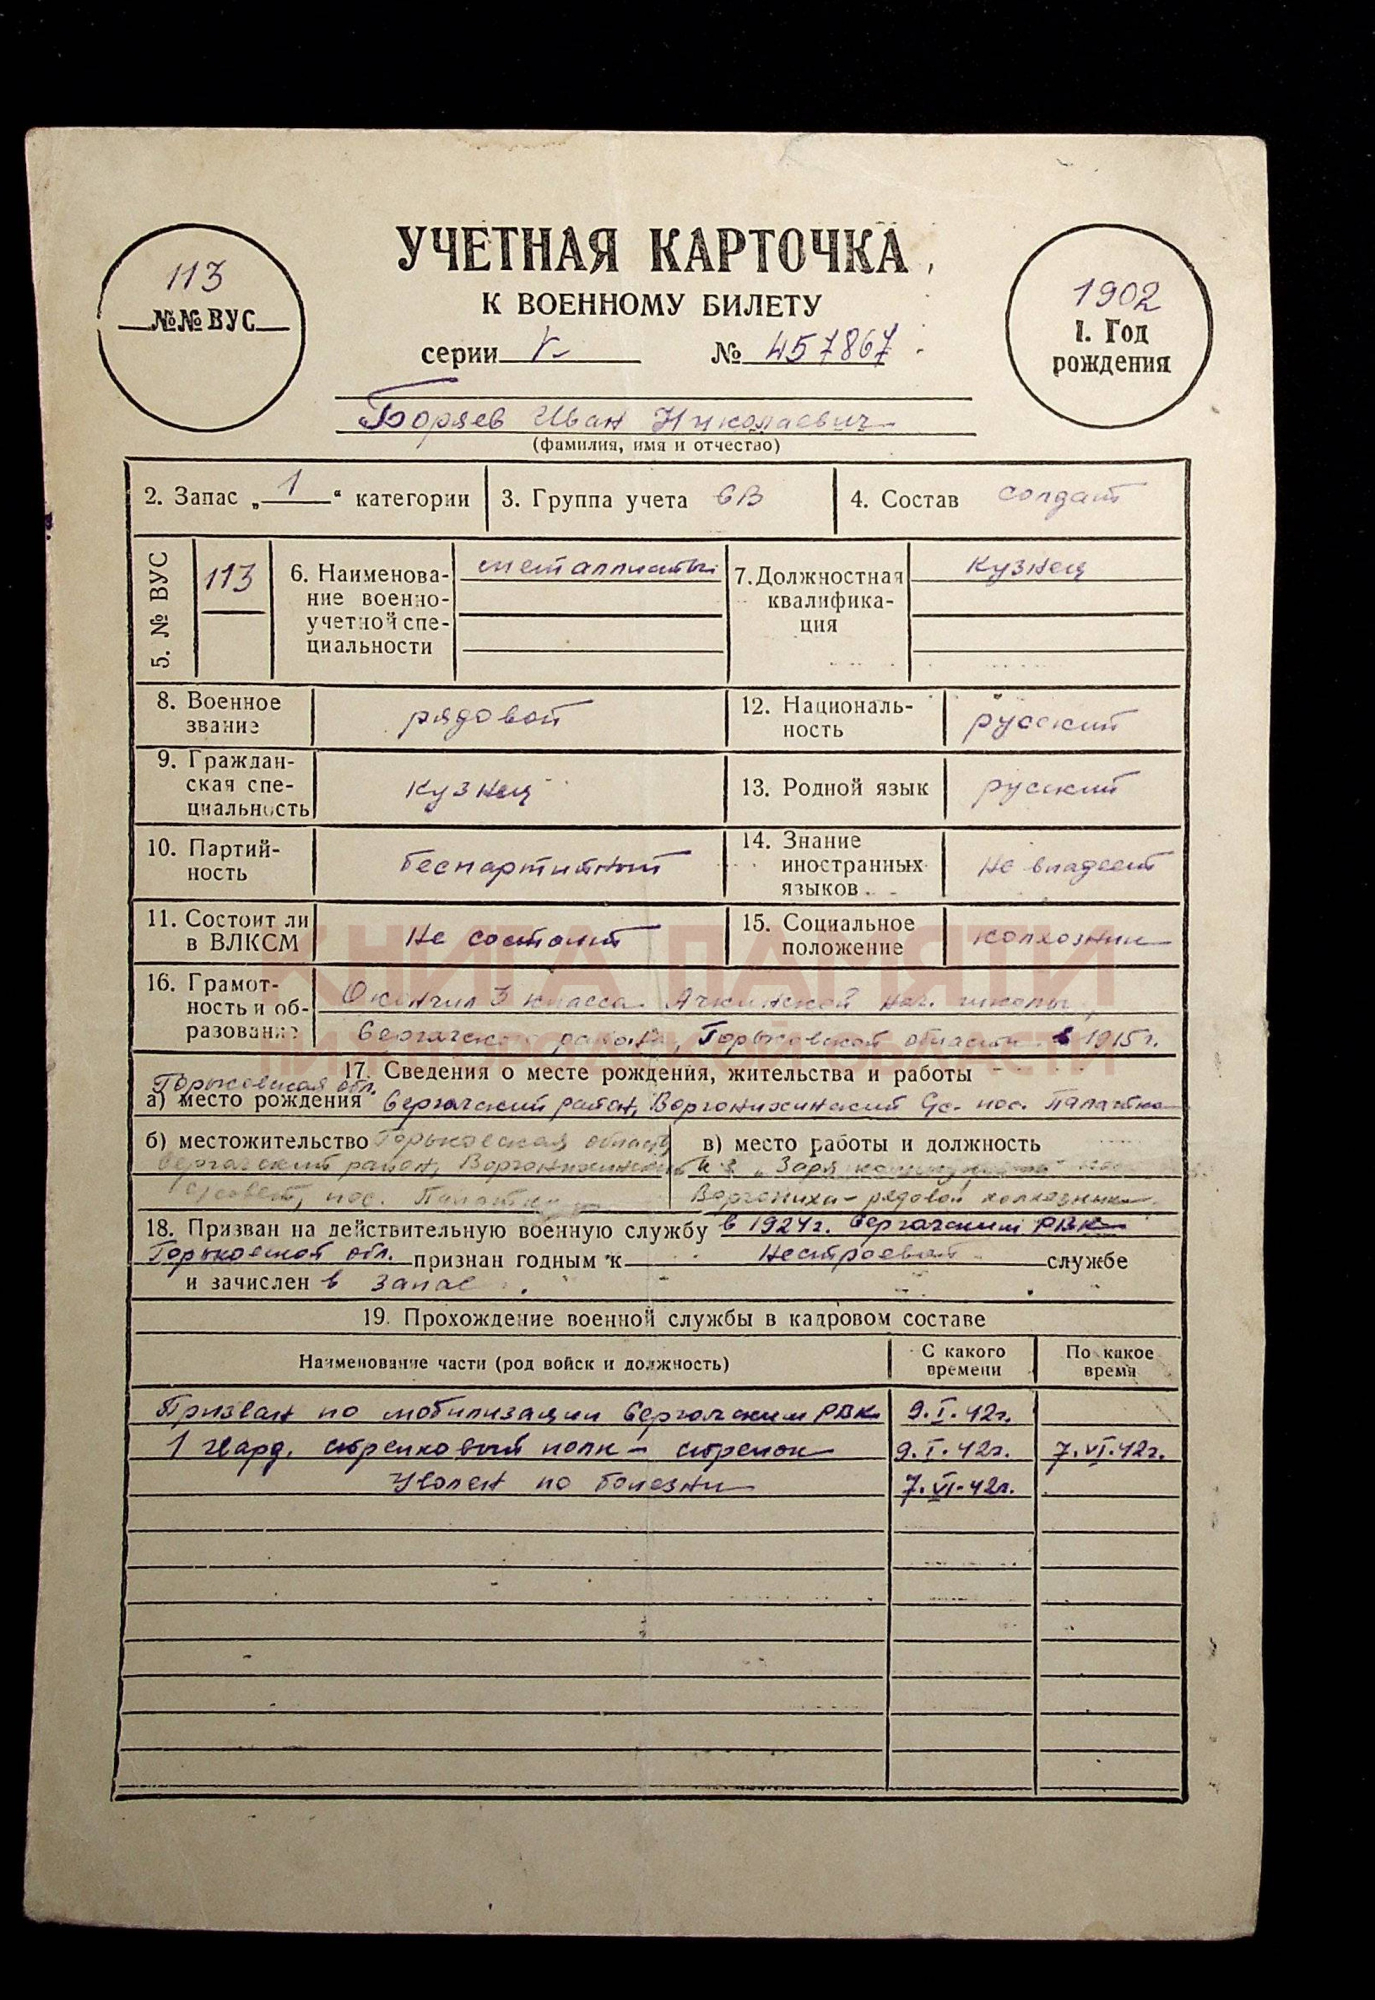 УЧЕТНАЯ КАРТОЧКА
К ВОЕННОМУ БИЛЕТУ
серии № 457867
113
№№ ВУС
1902
1. Год
рождения
Боряев Иван Николаевич
(фамилия, имя и отчество)
2. Запас „ 1 “ категории
3. Группа учета СВ
4. Состав солдат
5. № ВУС
113
6. Наименова-
ние военно-
учетной спе-
циальности
металлисты
7. Должностная
квалифика-
ция
кузнец
8. Военное
звание
рядовой
12. Националь-
ность
русский
9. Граждан-
ская спе-
циальность
кузнец
13. Родной язык
русский
10. Партий-
ность
беспартийный
14. Знание
иностранных
языков
не владеет
11. Состоит ли
в ВЛКСМ
не состоит
15. Социальное
положение
колхозник
16. Грамот-
ность и об-
разование
Окончил 3 класса Ачкинской нач. школы
Сергачского района, Горьковской области в 1915 г.
17. Сведения о месте рождения, жительства и работы
Горьковская обл.
а) место рождения Сергачский район, Воргонихинский с/с. пос. Палатка
б) местожительство Горьковская область
Сергачский район, Воргонихинский
с/совет, пос. Палатка
в) место работы и должность
к-з „Заря
Воргониха - рядовой колхозник
18. Призван на действительную военную службу в 1924 г. Сергачским РВК
Горьковской обл. признан годным к нестроевой службе
и зачислен в запас
19. Прохождение военной службы в кадровом составе
Наименование части (род войск и должность)
С какого
времени
По какое
время
Призван по мобилизации Сергачским РВК 9.I.42г.
1 гвард. стрелковый полк - стрелок 9.I.42г. 7.VI.42г.
Уволен по болезни 7.VI.42г.
КНИГА ПАМЯТИ
НИЖЕГОРОДСКОЙ ОБЛАСТИ